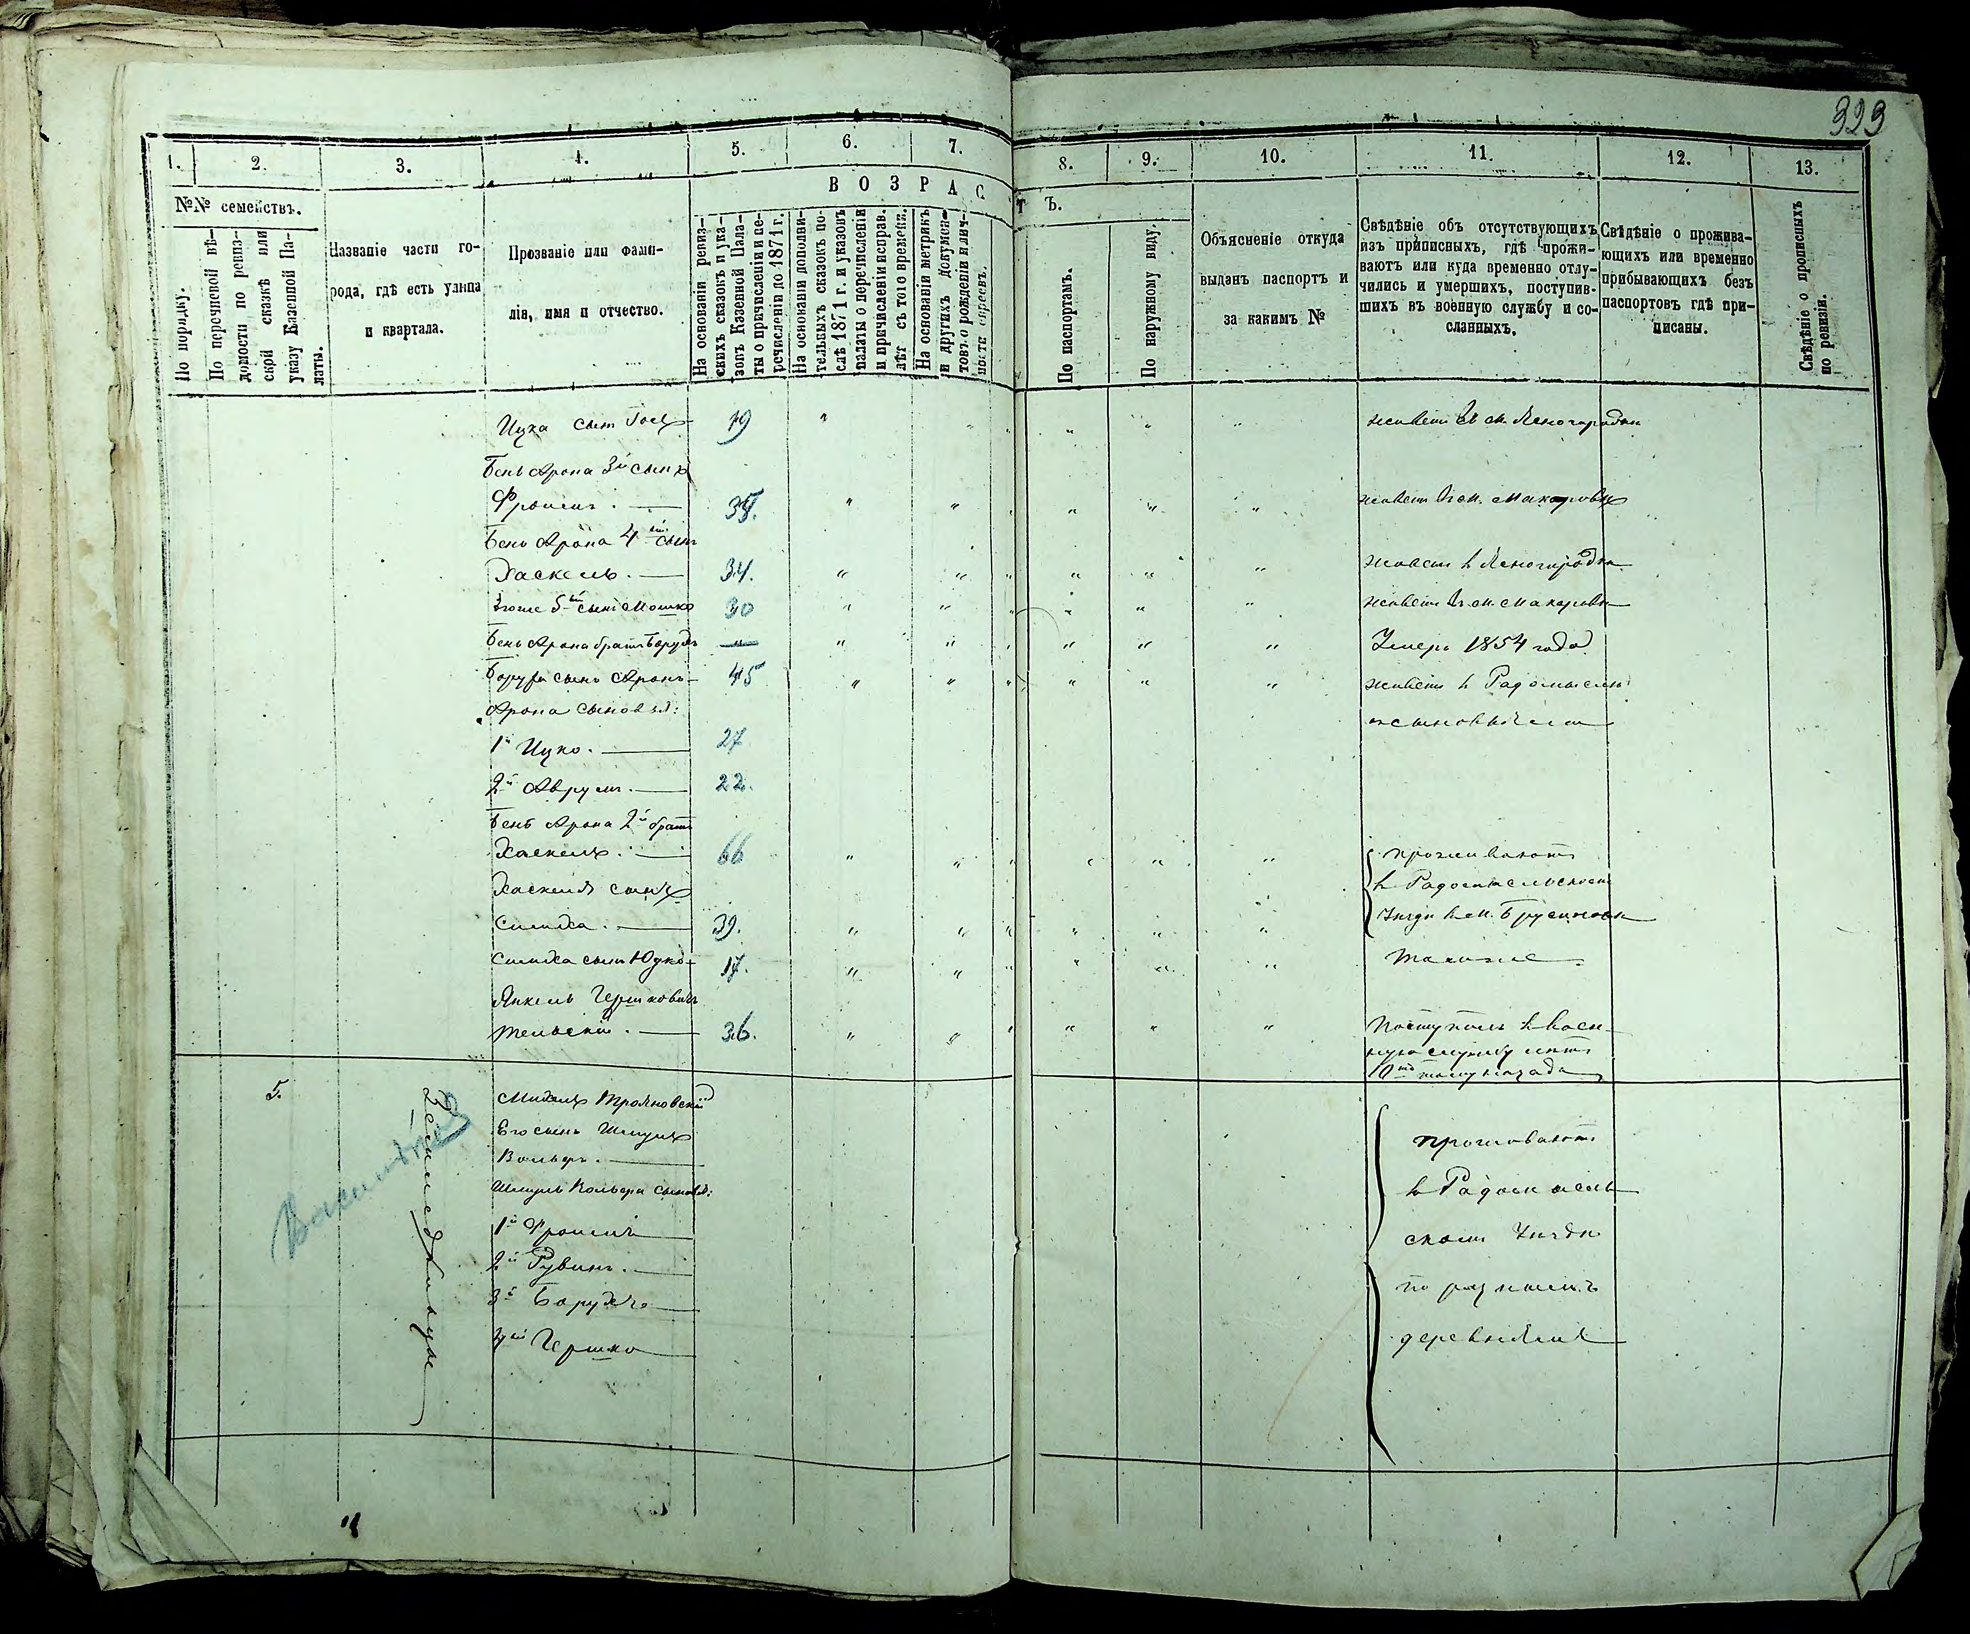 323
1. 2. 3. 4. 5. 6. 7. 8. 9. 10. 11. 12. 13.
№№ семействъ.
ВОЗРАСТЪ.
По порядку.
По перечневой вѣ-
домости по ревиз-
ской сказкѣ или
указу Казенной Па-
латы.
Названіе части го-
рода, гдѣ есть улица
и квартала.
Прозваніе или фами-
лія, имя и отчество.
На основаніи ревиз-
скихъ сказокъ и ука-
зовъ Казенной Пала-
ты о причисленіи и пе-
речисленіи до 1871 г.
На основаніи дополни-
тельныхъ сказокъ по-
слѣ 1871 г. и указовъ
палаты о перечисленіи
и причисленіи исправ.
лѣт съ того времени.
На основаніи метрикъ
и другихъ докумен-
товъ о рожденіи и лич-
ности евреевъ.
По паспортамъ.
По наружному виду.
Объясненіе откуда
выданъ паспортъ и
за какимъ №
Свѣдѣніе объ отсутствующихъ
изъ приписныхъ, гдѣ прожи-
ваютъ или куда временно отлу-
чились и умершихъ, поступив-
шихъ въ военную службу и со-
сланныхъ.
Свѣдѣніе о прожива-
ющихъ или временно
прибывающихъ безъ
паспортовъ гдѣ при-
писаны.
Свѣдѣніе о прописныхъ
по ревизіи.
Ицка сынъ 19 живетъ въ м. Ясногородки
Бень Арона 3й сынъ
Фроимъ. 35. живетъ въ м. Макаровъ
Бень Арона 4й сынъ
Хаскель. 34. живетъ въ Ясногородка
5й сынъ Мошко 30 живетъ въ м. Макаровъ
Бень Арона братъ Борухъ — Умеръ 1854 года
Боруха сынъ Аронъ 45 живетъ въ Радомыслѣ
Арона сыновья: съ сыновьями
1й Ицко. 27
2й Аврумъ. 22.
Бень Арона 2й братъ
Хаскель. 66 проживаютъ
Хаскеля сынъ въ Радомысльскомъ
Симха. 39. Уѣздѣ въ м. Брусиловѣ
Симха сынъ Юдко 17. тоже
Янкель Гершковичъ
Тельскій. 36. Поступилъ въ воен-
ную службу лѣтъ
10ть тому назадъ
5. Михель Трояновскій
Его сынъ Шмуль
Вольфъ. проживаютъ
Шмуль Вольфа сыновья: въ Радомысль-
1й Фроимъ скомъ Уѣздѣ
2й Рувинъ. по разнымъ
3й Борухъ деревнямъ
4й Гершко